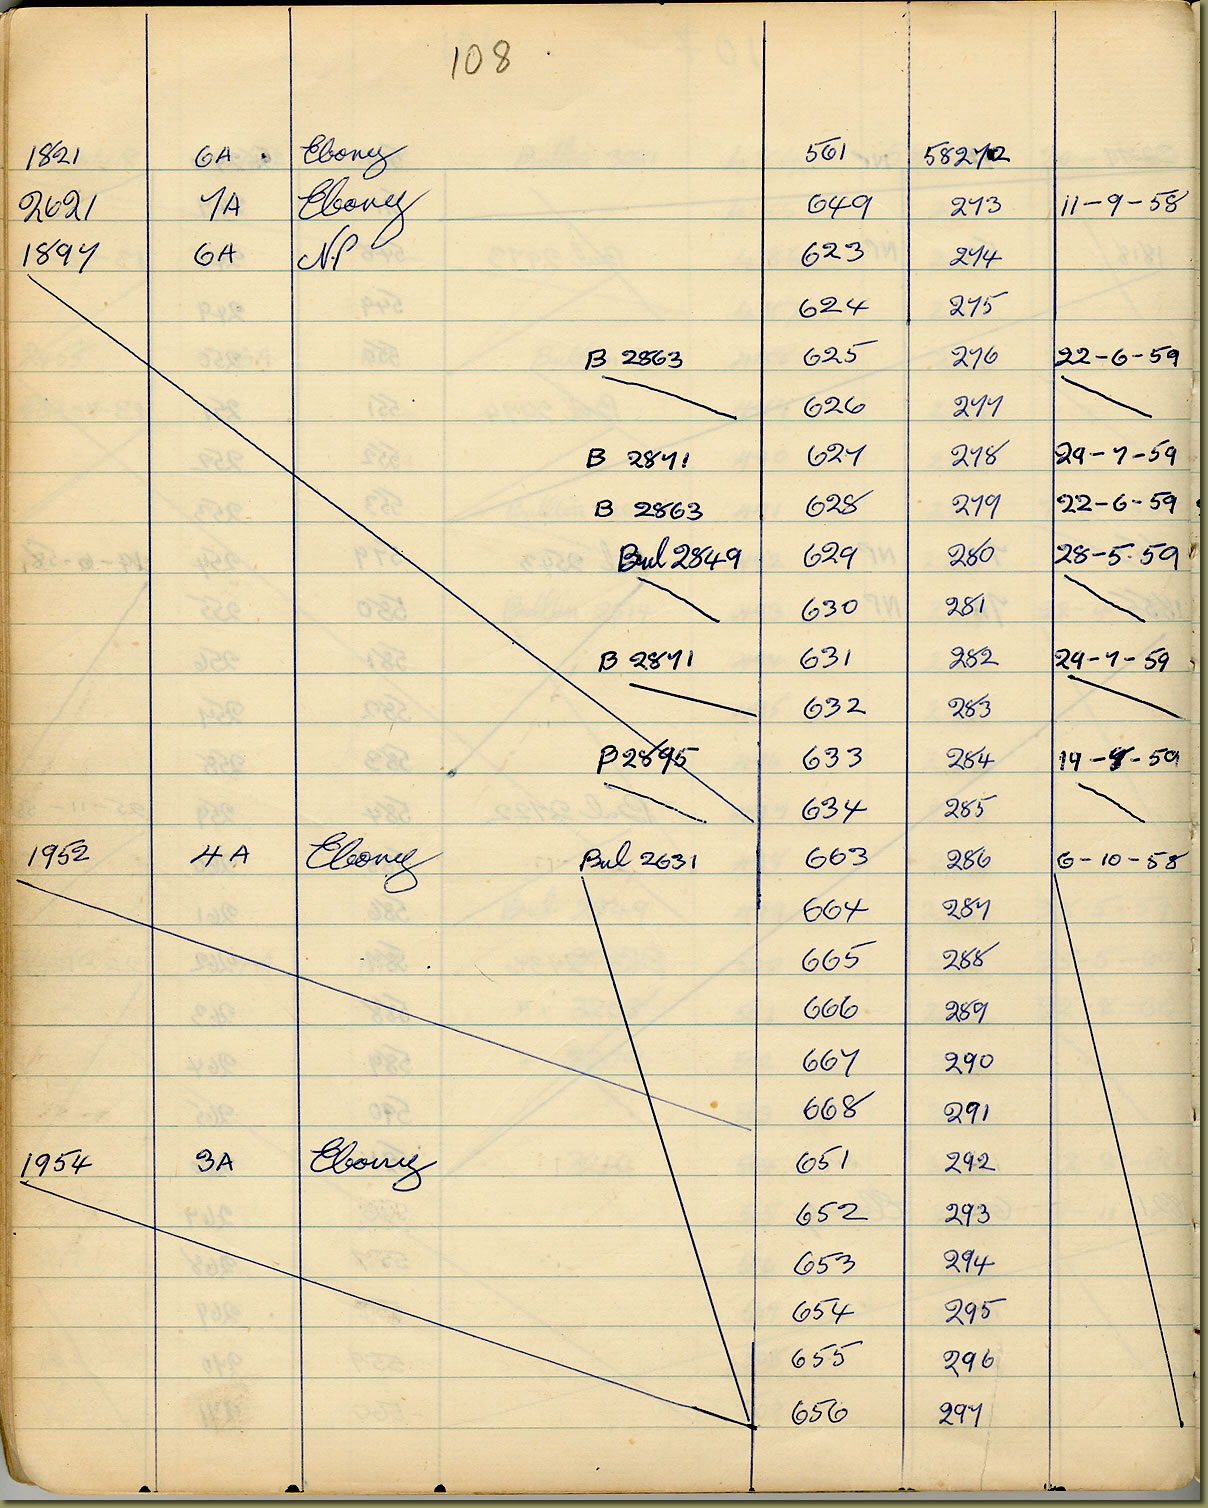 108
1821 6A Ebony 561 58272
2621 7A Ebony 649 273 11-9-58
1897 6A NP 623 274
624 275
B 2863 625 276 22-6-59
626 277
B 2871 627 278 29-7-59
B 2863 628 279 22-6-59
Bul 2849 629 280 28-5-59
630 281
B 2871 631 282 29-7-59
632 283
B 2895 633 284 19-8-59
634 285
1952 4A Ebony Bul 2631 663 286 6-10-58
664 287
665 288
666 289
667 290
668 291
1954 3A Ebony 651 292
652 293
653 294
654 295
655 296
656 297